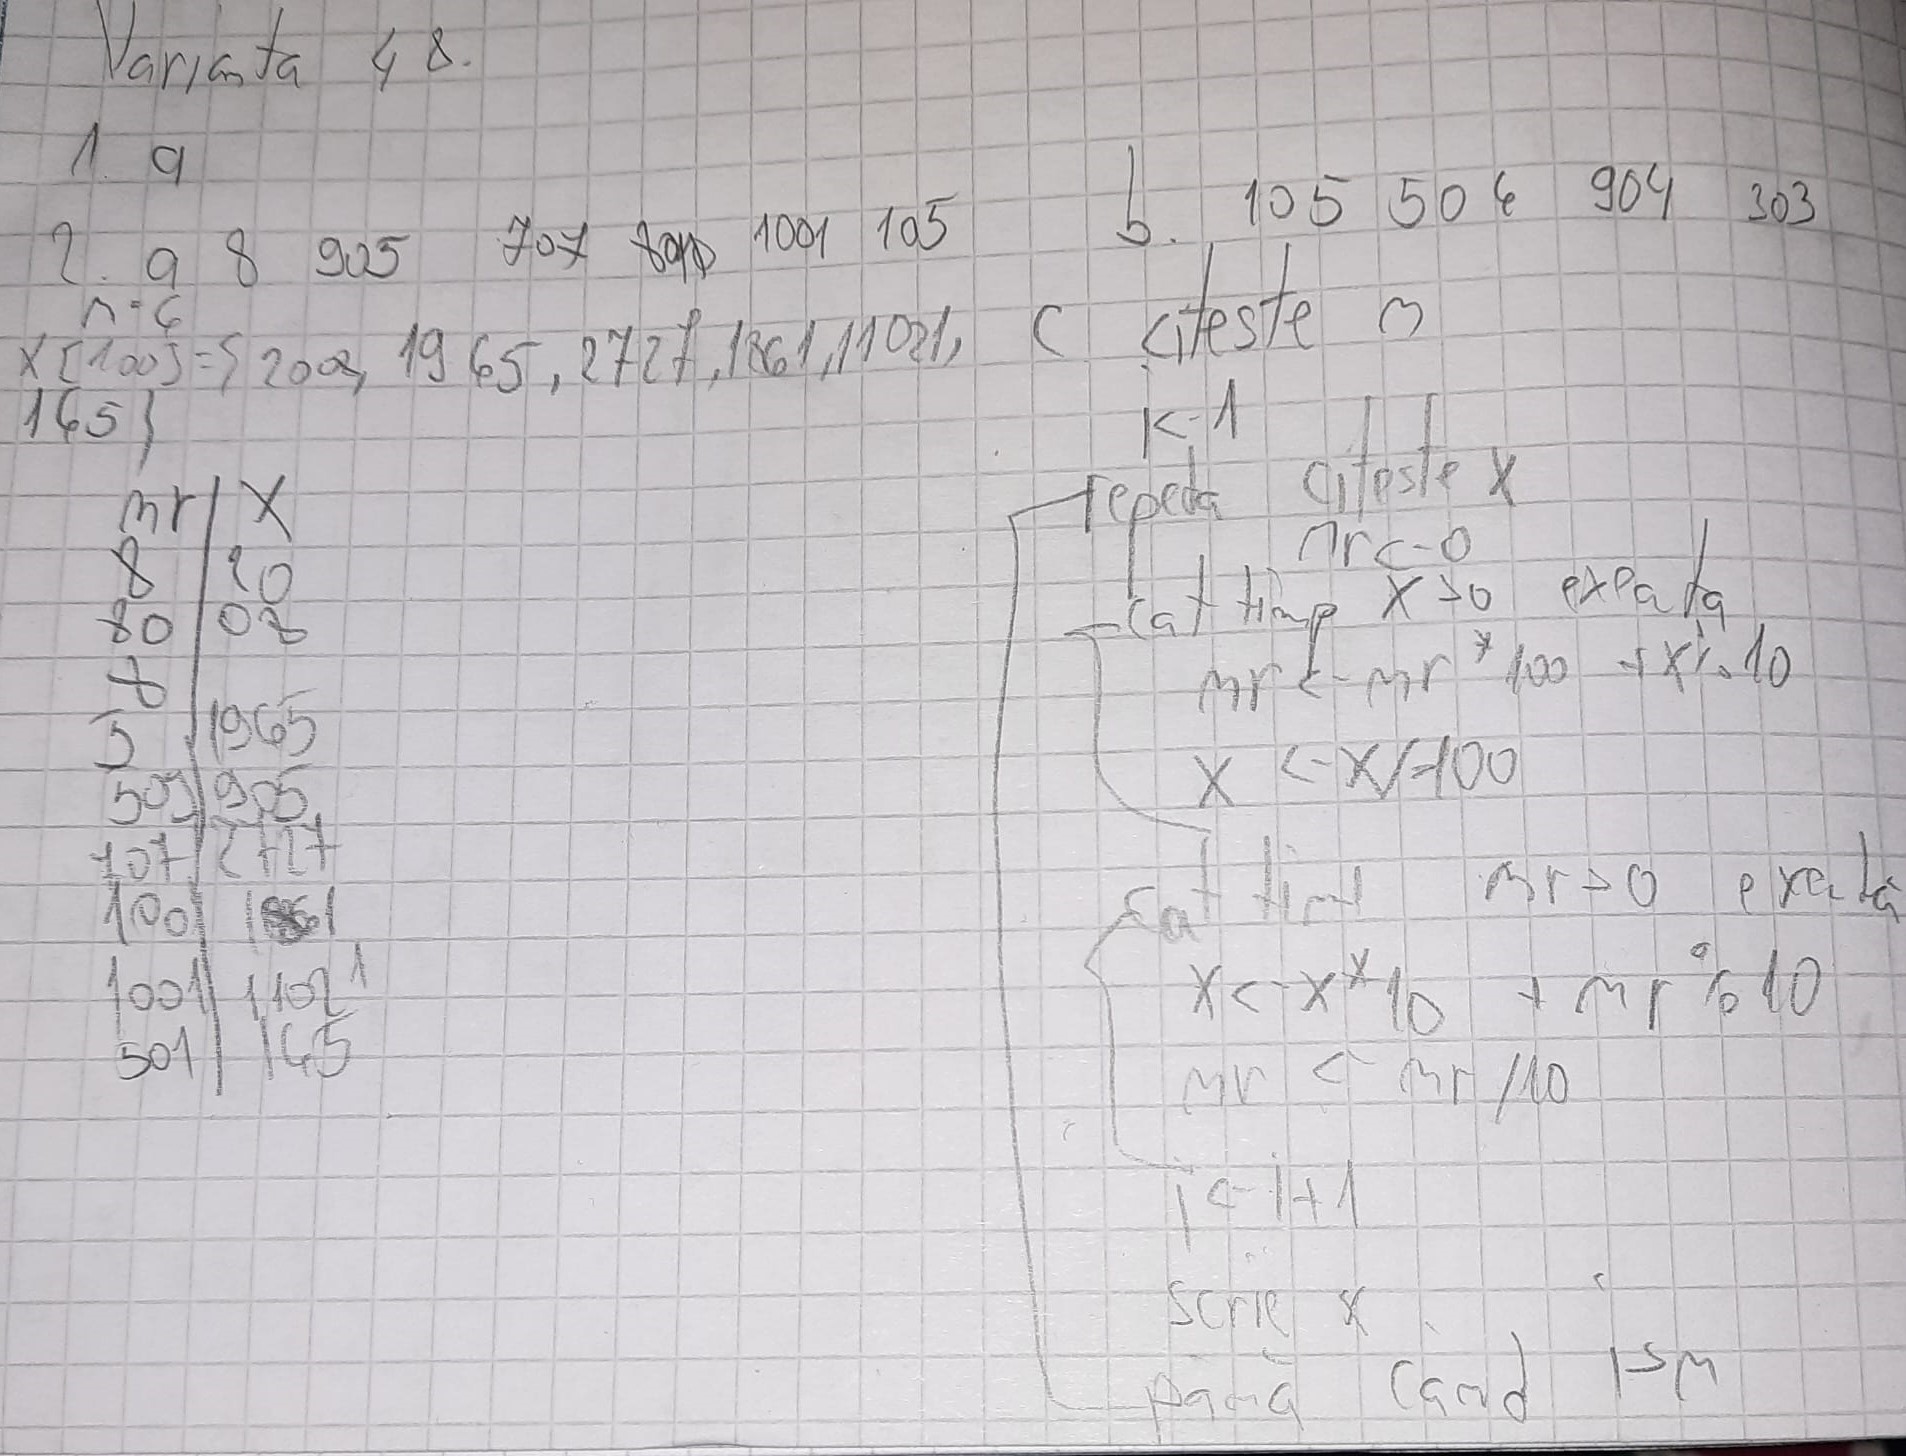 Varianta 48.
1. a
2. a 8 905 707 1001 105
n=6
x[100]={2008, 1965, 2727, 1861, 11021,
165}
nr | x
8 | 20
80 | 08
8
5 | 1965
509 | 905
707 | 2727
1001 | 1861
1001 | 11021
501 | 165
b. 105 506 904 303
c citeste n
i<-1
repeta citeste x
nr<-0
cat timp x>0 executa
nr<-nr*100 +x%10
x<-x/100
cat timp nr>0 execută
x<-x*10 + nr%10
nr<-nr/10
i<-i+1
scrie x
până când i>n